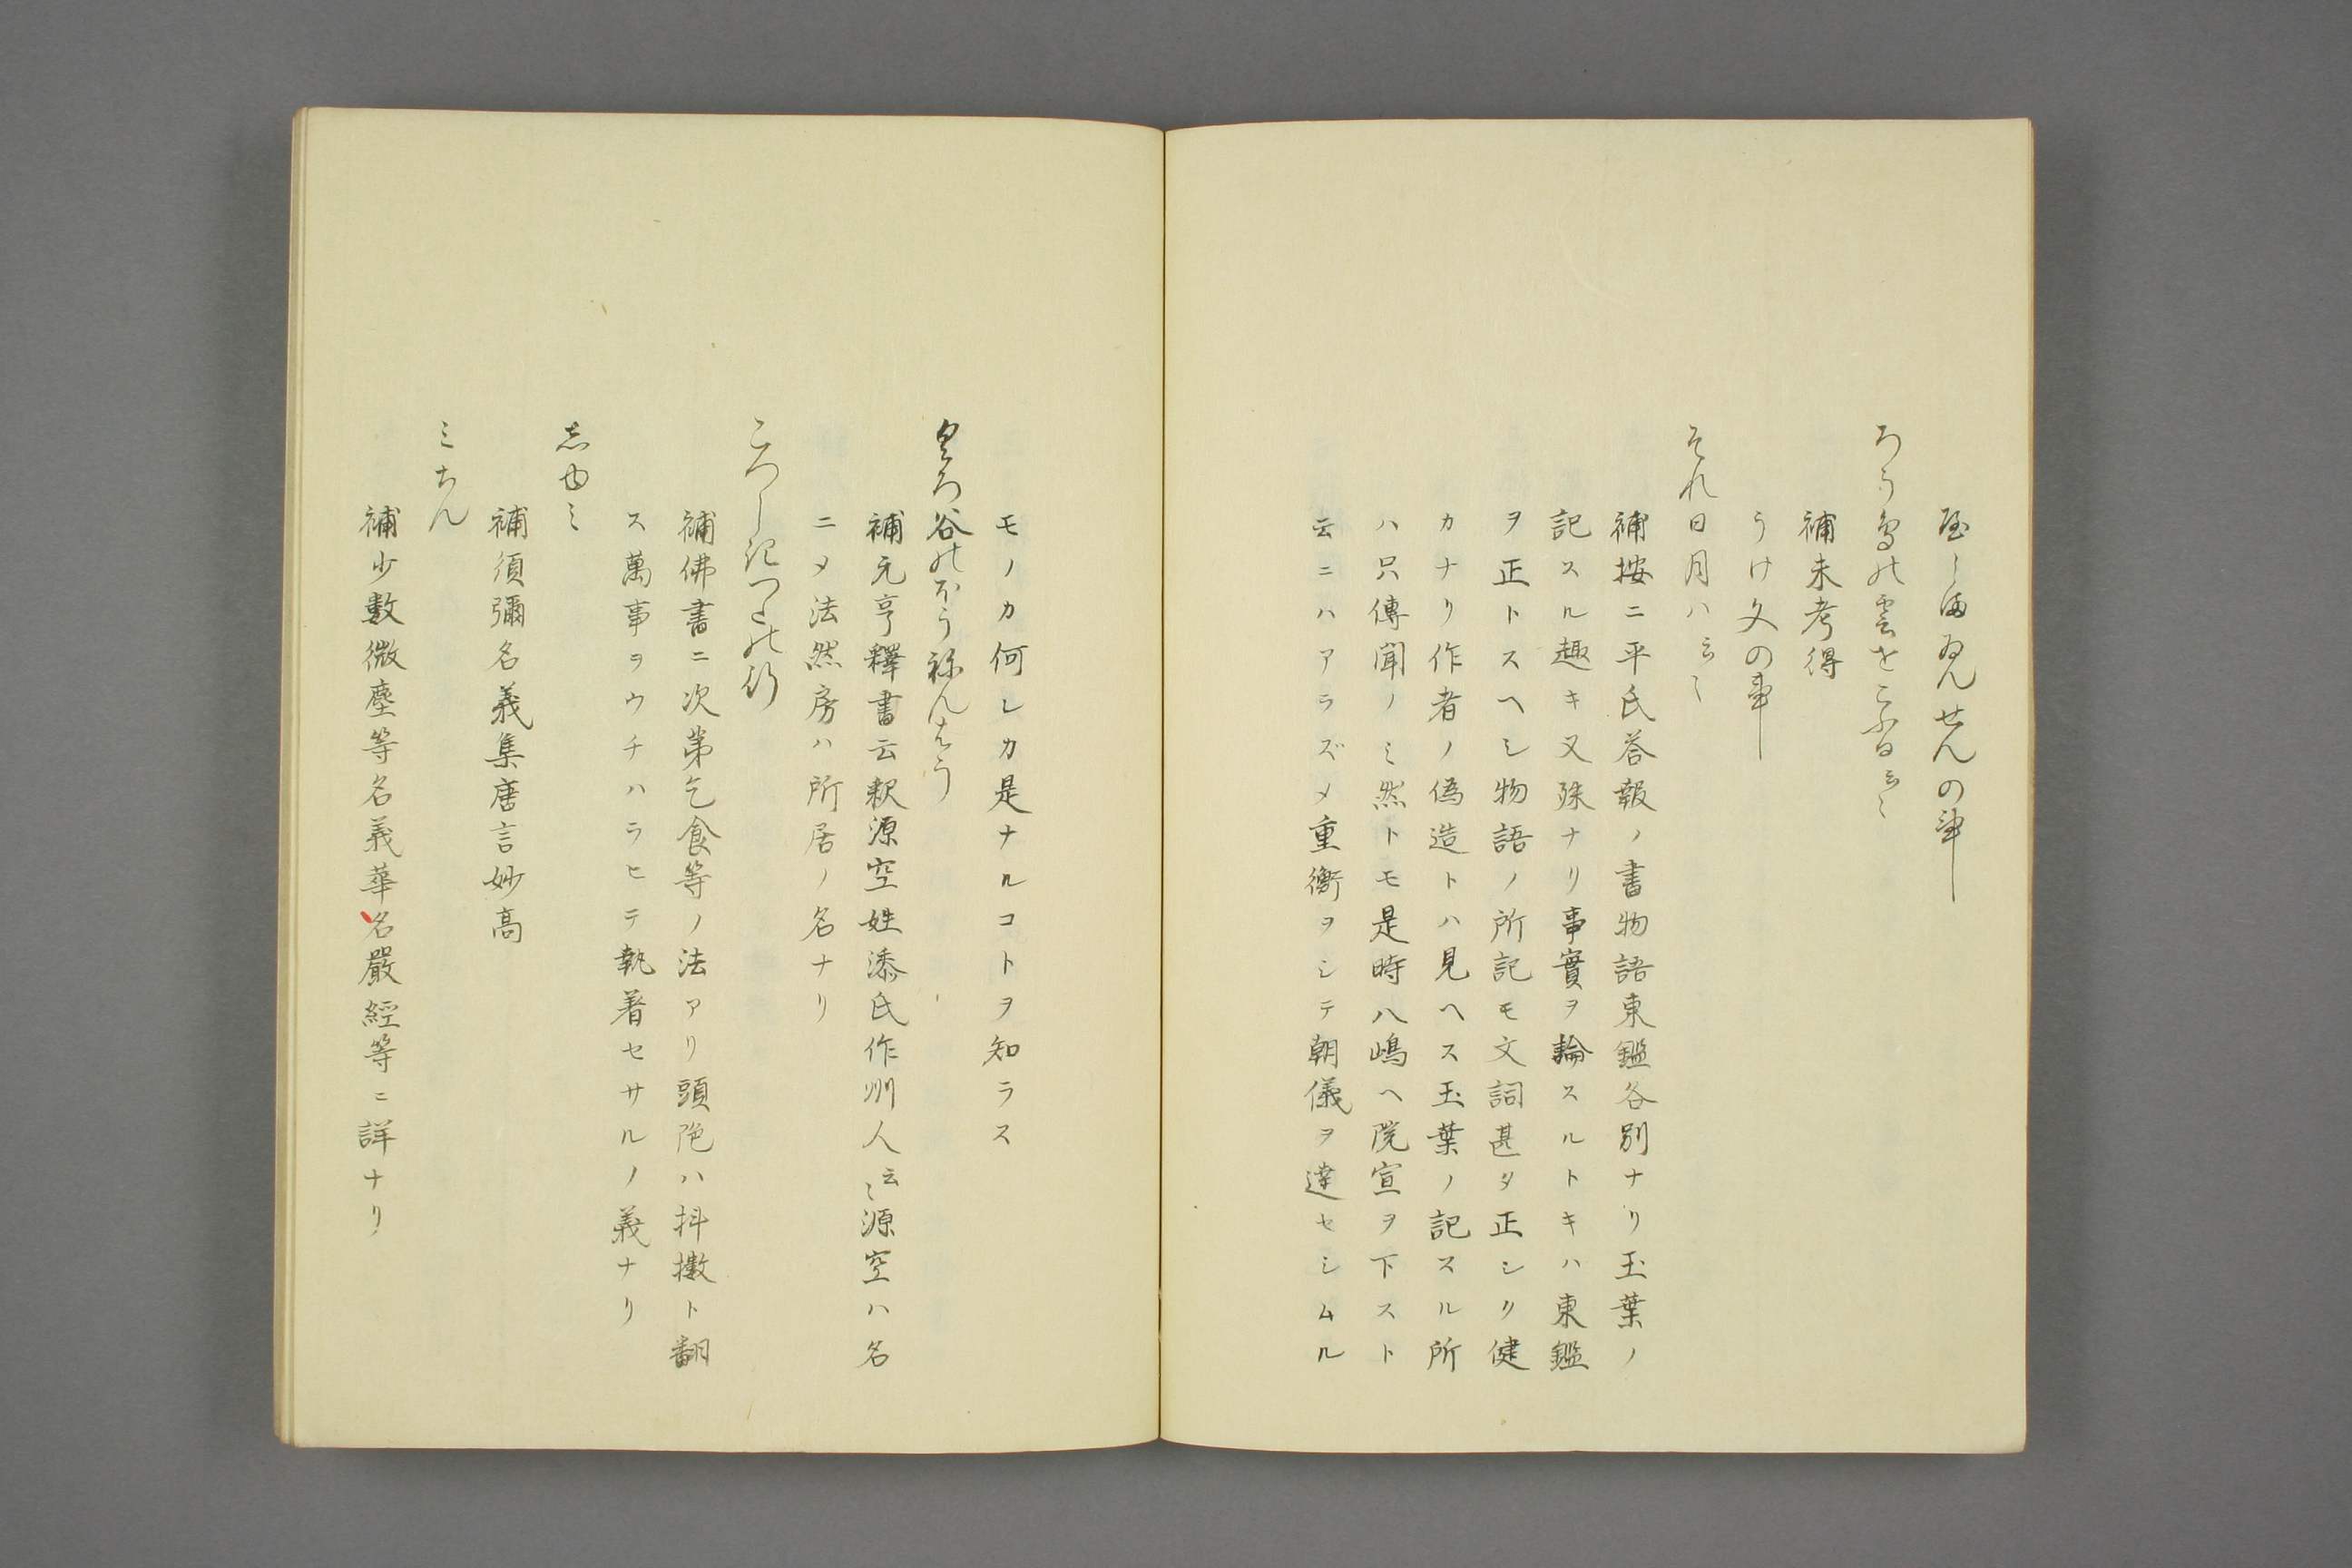 屋しまゐんせんの事
ろう鳥の雲をこふる云〻
補未考得
うけ文の事
それ日月ハ云〻
補按ニ平氏答報ノ書物語東鑑各別ナリ玉葉ノ
記スル趣キ又殊ナリ事實ヲ論スルトキハ東鑑
ヲ正トスヘシ物語ノ所記モ文詞甚タ正シク健
カナリ作者ノ偽造トハ見ヘス玉葉ノ記スル所
ハ只傳聞ノミ然トモ是時八嶋ヘ院宣ヲ下スト
云ニハアラズメ重衡ヲシテ朝儀ヲ達セシムル
モノカ何レカ是ナルコトヲ知ラス
黒谷のほう祢んはう
補元亨釋書云釈源空姓漆氏作州人云〻源空ハ名
ニメ法然房ハ所居ノ名ナリ
こつしきつたの行
補佛書ニ次第乞食等ノ法アリ頭陀ハ抖擻ト翻
ス萬事ヲウチハラヒテ執着セサルノ義ナリ
志ゆミ
補須彌名義集唐言妙高
ミちん
補少數微塵等名義華名嚴經等ニ詳ナリ